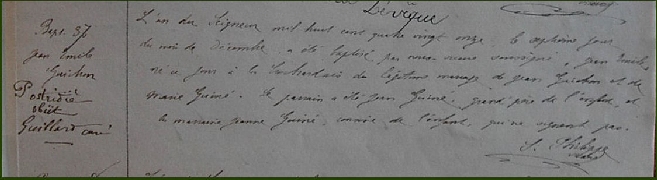 Bapt. 37
Jean Emile
Guichon
Postridie
obiit
Guillard curé
L'an du Seigneur mil huit cent quatre vingt onze le septième jour
du mois de Décembre a été baptisé par nous vicaire soussigné, Jean Emile
né ce jour à la du légitime mariage de Jean Guichon et de
Marie Guiné. Le parrain a été Jean Guiné, grand père de l'enfant, et
la marraine Jeanne Guiné, cousine de l'enfant, qui ne signent pas.